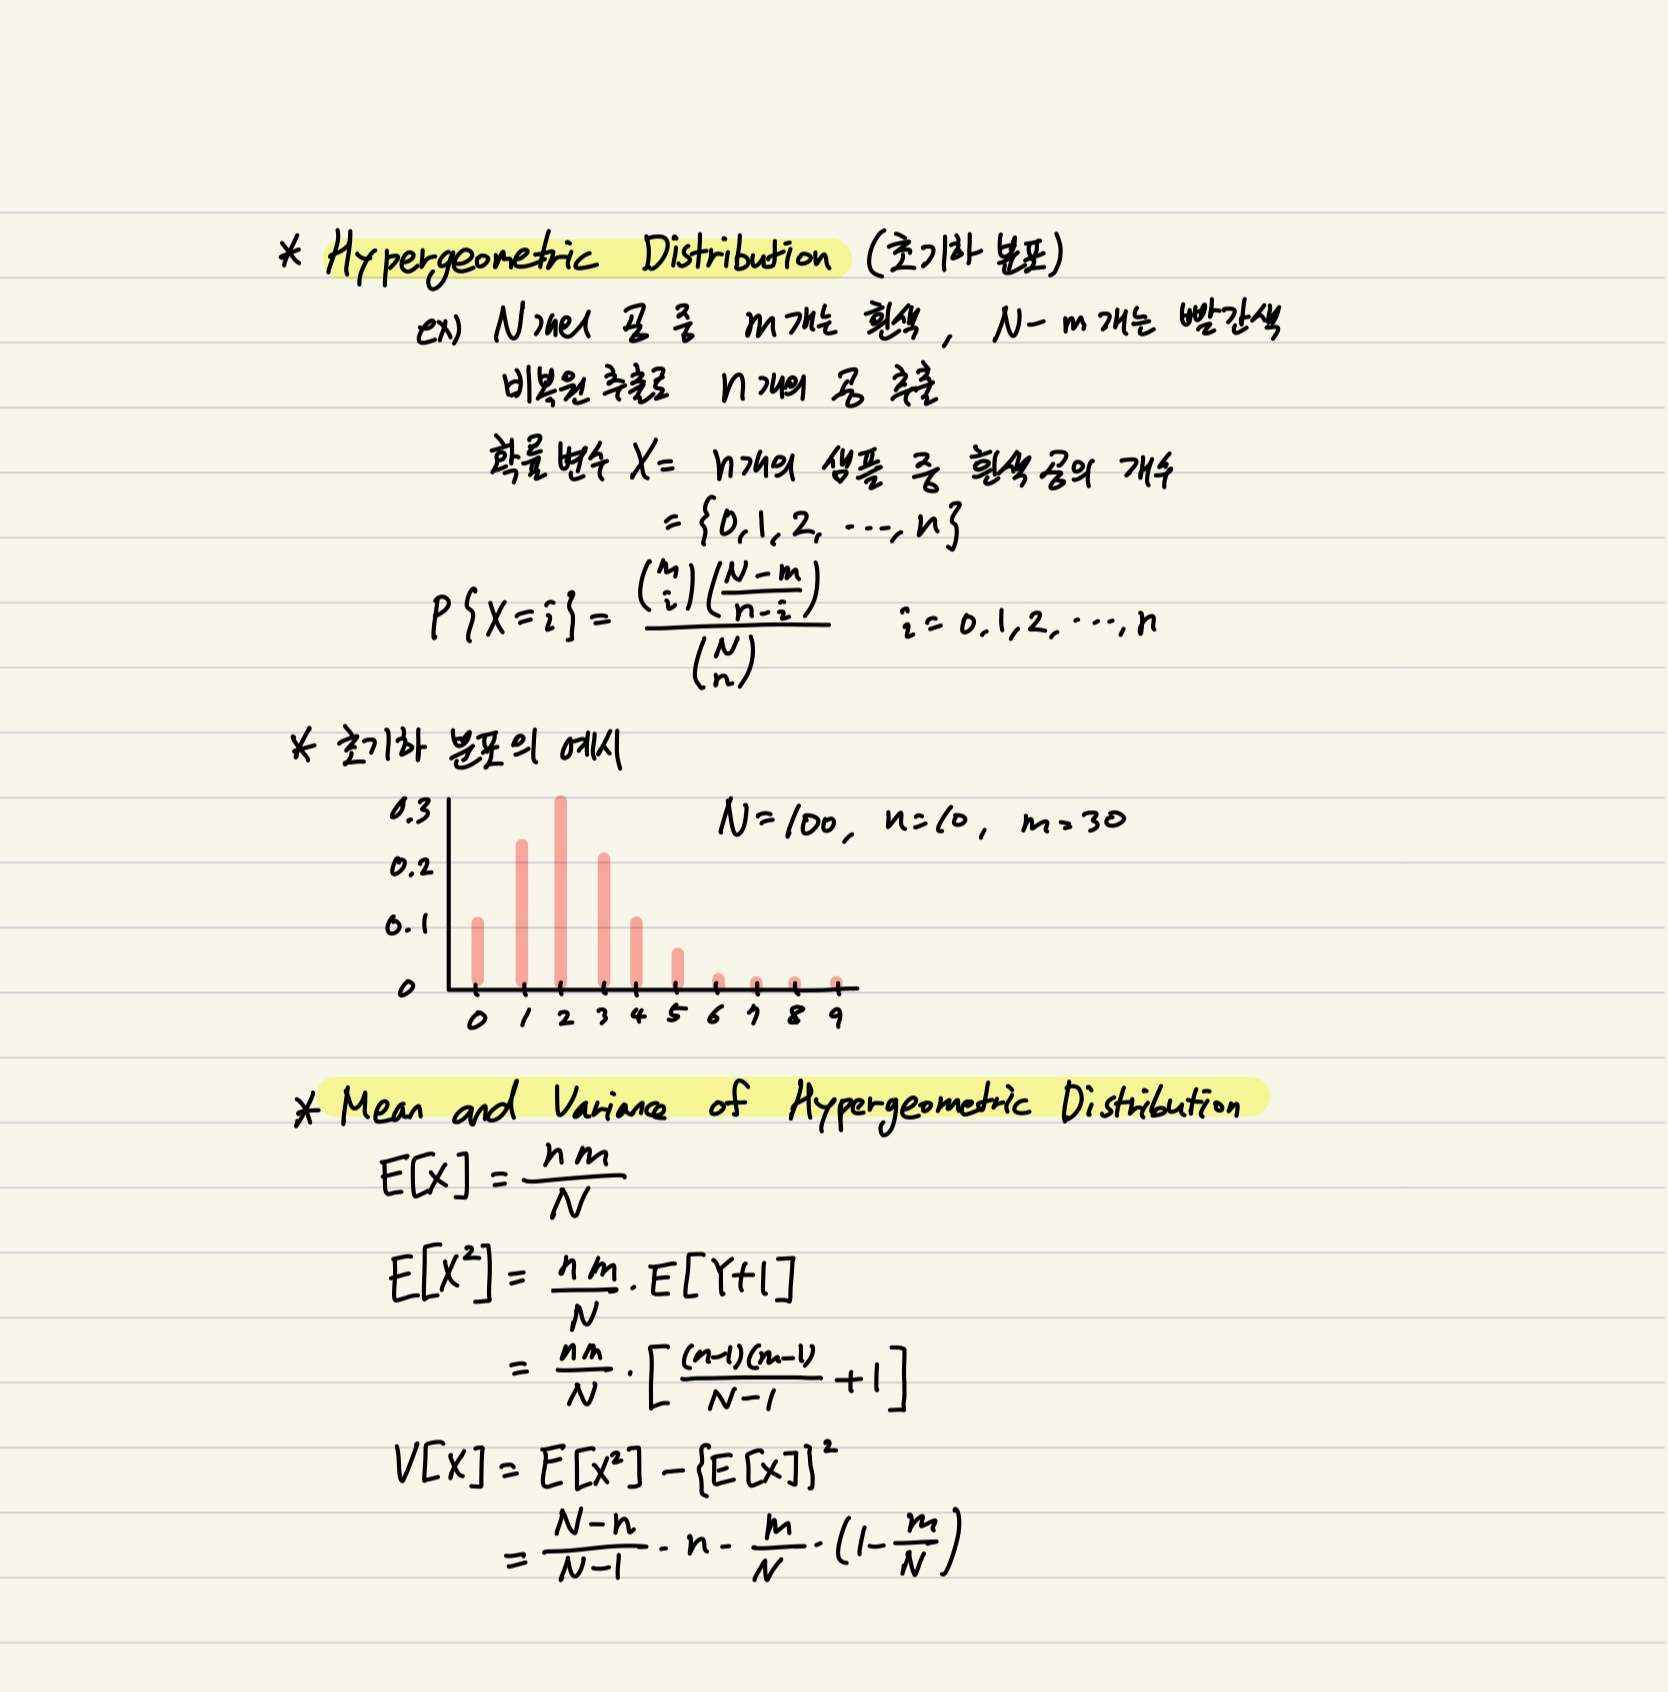 * Hypergeometric Distribution (초기하 분포)
ex) N개의 공 중 m개는 흰색, N-m개는 빨간색
비복원 추출로 n개의 공 추출
확률변수 X= n개의 샘플 중 흰색공의 개수
= {0,1,2, ..., n}
P{X=i} = \frac{\binom{m}{i}(\frac{N-m}{n-i})}{\binom{N}{n}} i=0,1,2,...,n
* 초기하 분포의 예시
N=100, n=10, m=30
0.3
0.2
0.1
0
0 1 2 3 4 5 6 7 8 9
* Mean and Variance of Hypergeometric Distribution
E[X] = \frac{nm}{N}
E[X²] = \frac{nm}{N} · E[Y+1]
= \frac{nm}{N} · [\frac{(n-1)(m-1)}{N-1} + 1]
V[X] = E[X²] - {E[X]}²
= \frac{N-n}{N-1} · n - \frac{m}{N} · (1 - \frac{m}{N})